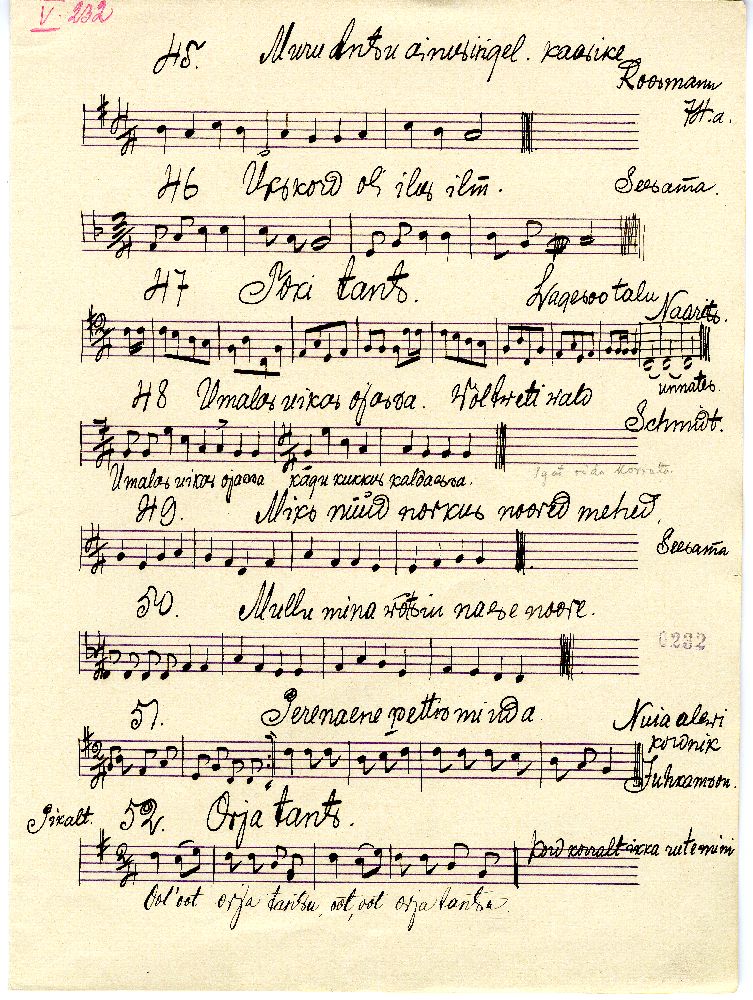 V. 232
45. Muru Antsu ainusingel. kaasike
Roosmann
74. a.
46 Ükskord oli ilus ilm̄.
Seesam̄a.
47 Pöxi tants.
Lagesoo talu
Naarits.
unnates.
48 Umalas uikas ojassa. Wõltweti wald
Schmidt.
Umalas uikas ojassa kägu kukkus kaldaessa.
49. Miks nüüd norkus noored mehed,
Seesam̄a
50. Mullu mina wõtsin naese noore.
0232
51. Perenaene pettis minda
Nuia alewi
kordnik
Juhkamson.
Pikalt. 52. Orja tants.
kord korralt ikka rutemini
Oot' oot orja tantsu, oot, oot orja tantsu.